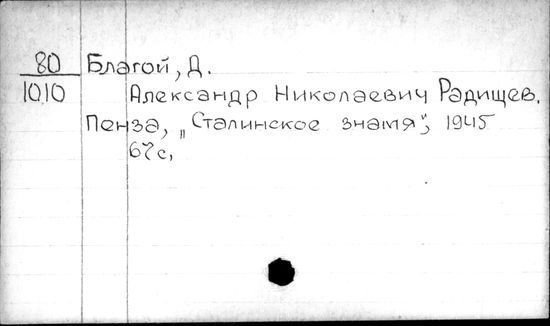 80 Благой, Д.
1010 Александр Николаевич Радищев.
Пенза, „Сталинское знамя", 1945
67с,